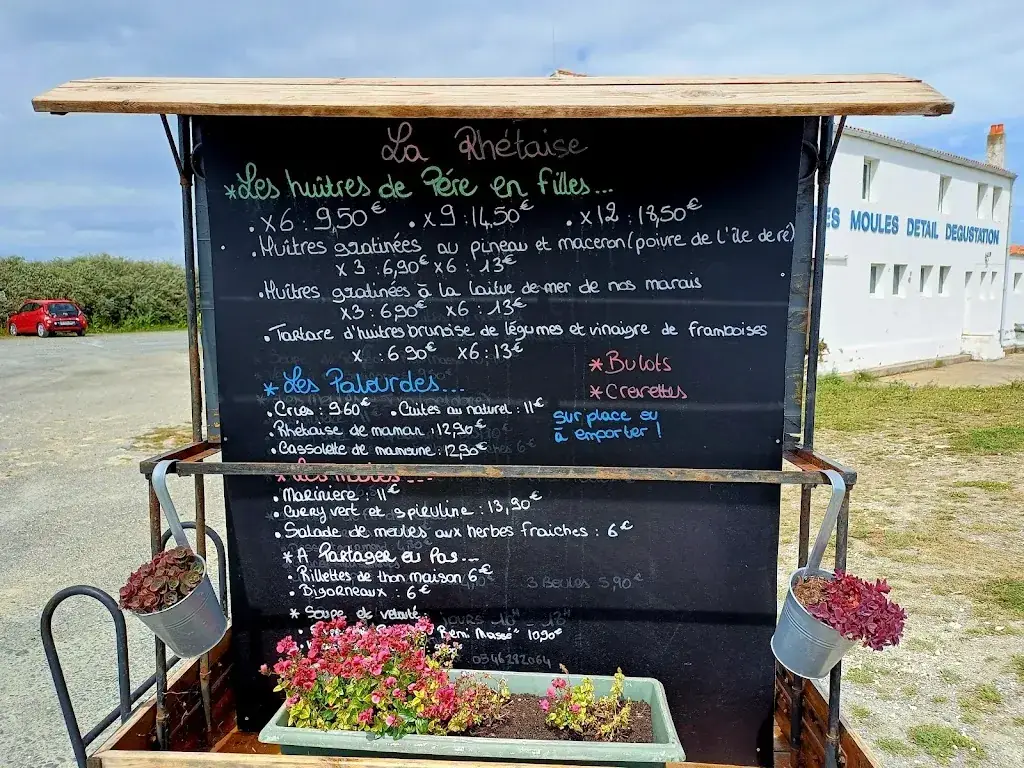 La Rhétaise
*Les huîtres de Père en filles...
. x6 : 9,50€ . x9 : 14,50€ . x12 : 18,50€
. Huîtres gratinées au pineau et maceron (poivre de l'île de ré)
x3 : 6,90€ x6 : 13€
. Huîtres gratinées à la laitue de mer de nos marais
x3 : 6,90€ x6 : 13€
. Tartare d'huitres brunoise de légumes et vinaigre de framboises
x : 6,90€ x6 : 13€
* Bulots
* Les Palourdes...
* Crevettes
. Crues : 9,60€ . Cuites au naturel : 11€
sur place ou
. Rhétaise de maman : 12,90€
à emporter !
. Cassolette de mamoune : 12,90€
* Les Moules...
. Marinière : 11€
. Curry vert et spiruline : 13,90€
. Salade de moules aux herbes fraiches : 6€
* A Partager ou Pas...
. Rillettes de thon maison 6€
3 Bentos 5,90€
. Bigorneaux : 6€
* Soupe et velouté
10,90€
0546292064
ES MOULES DETAIL DEGUSTATION